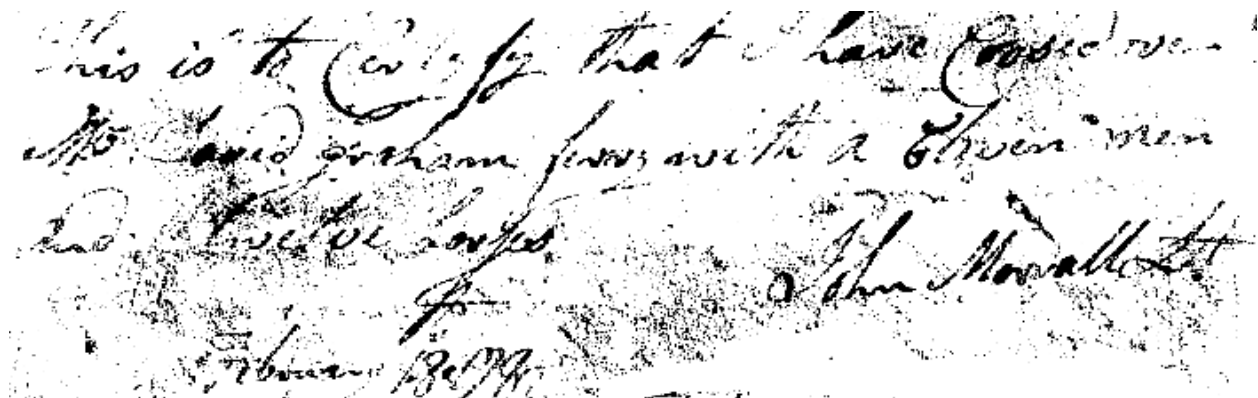 This is to Certify that I have Crosed over
Mr. David graham ferry with a Eleven men
and twelve horses
John Morrall Lt